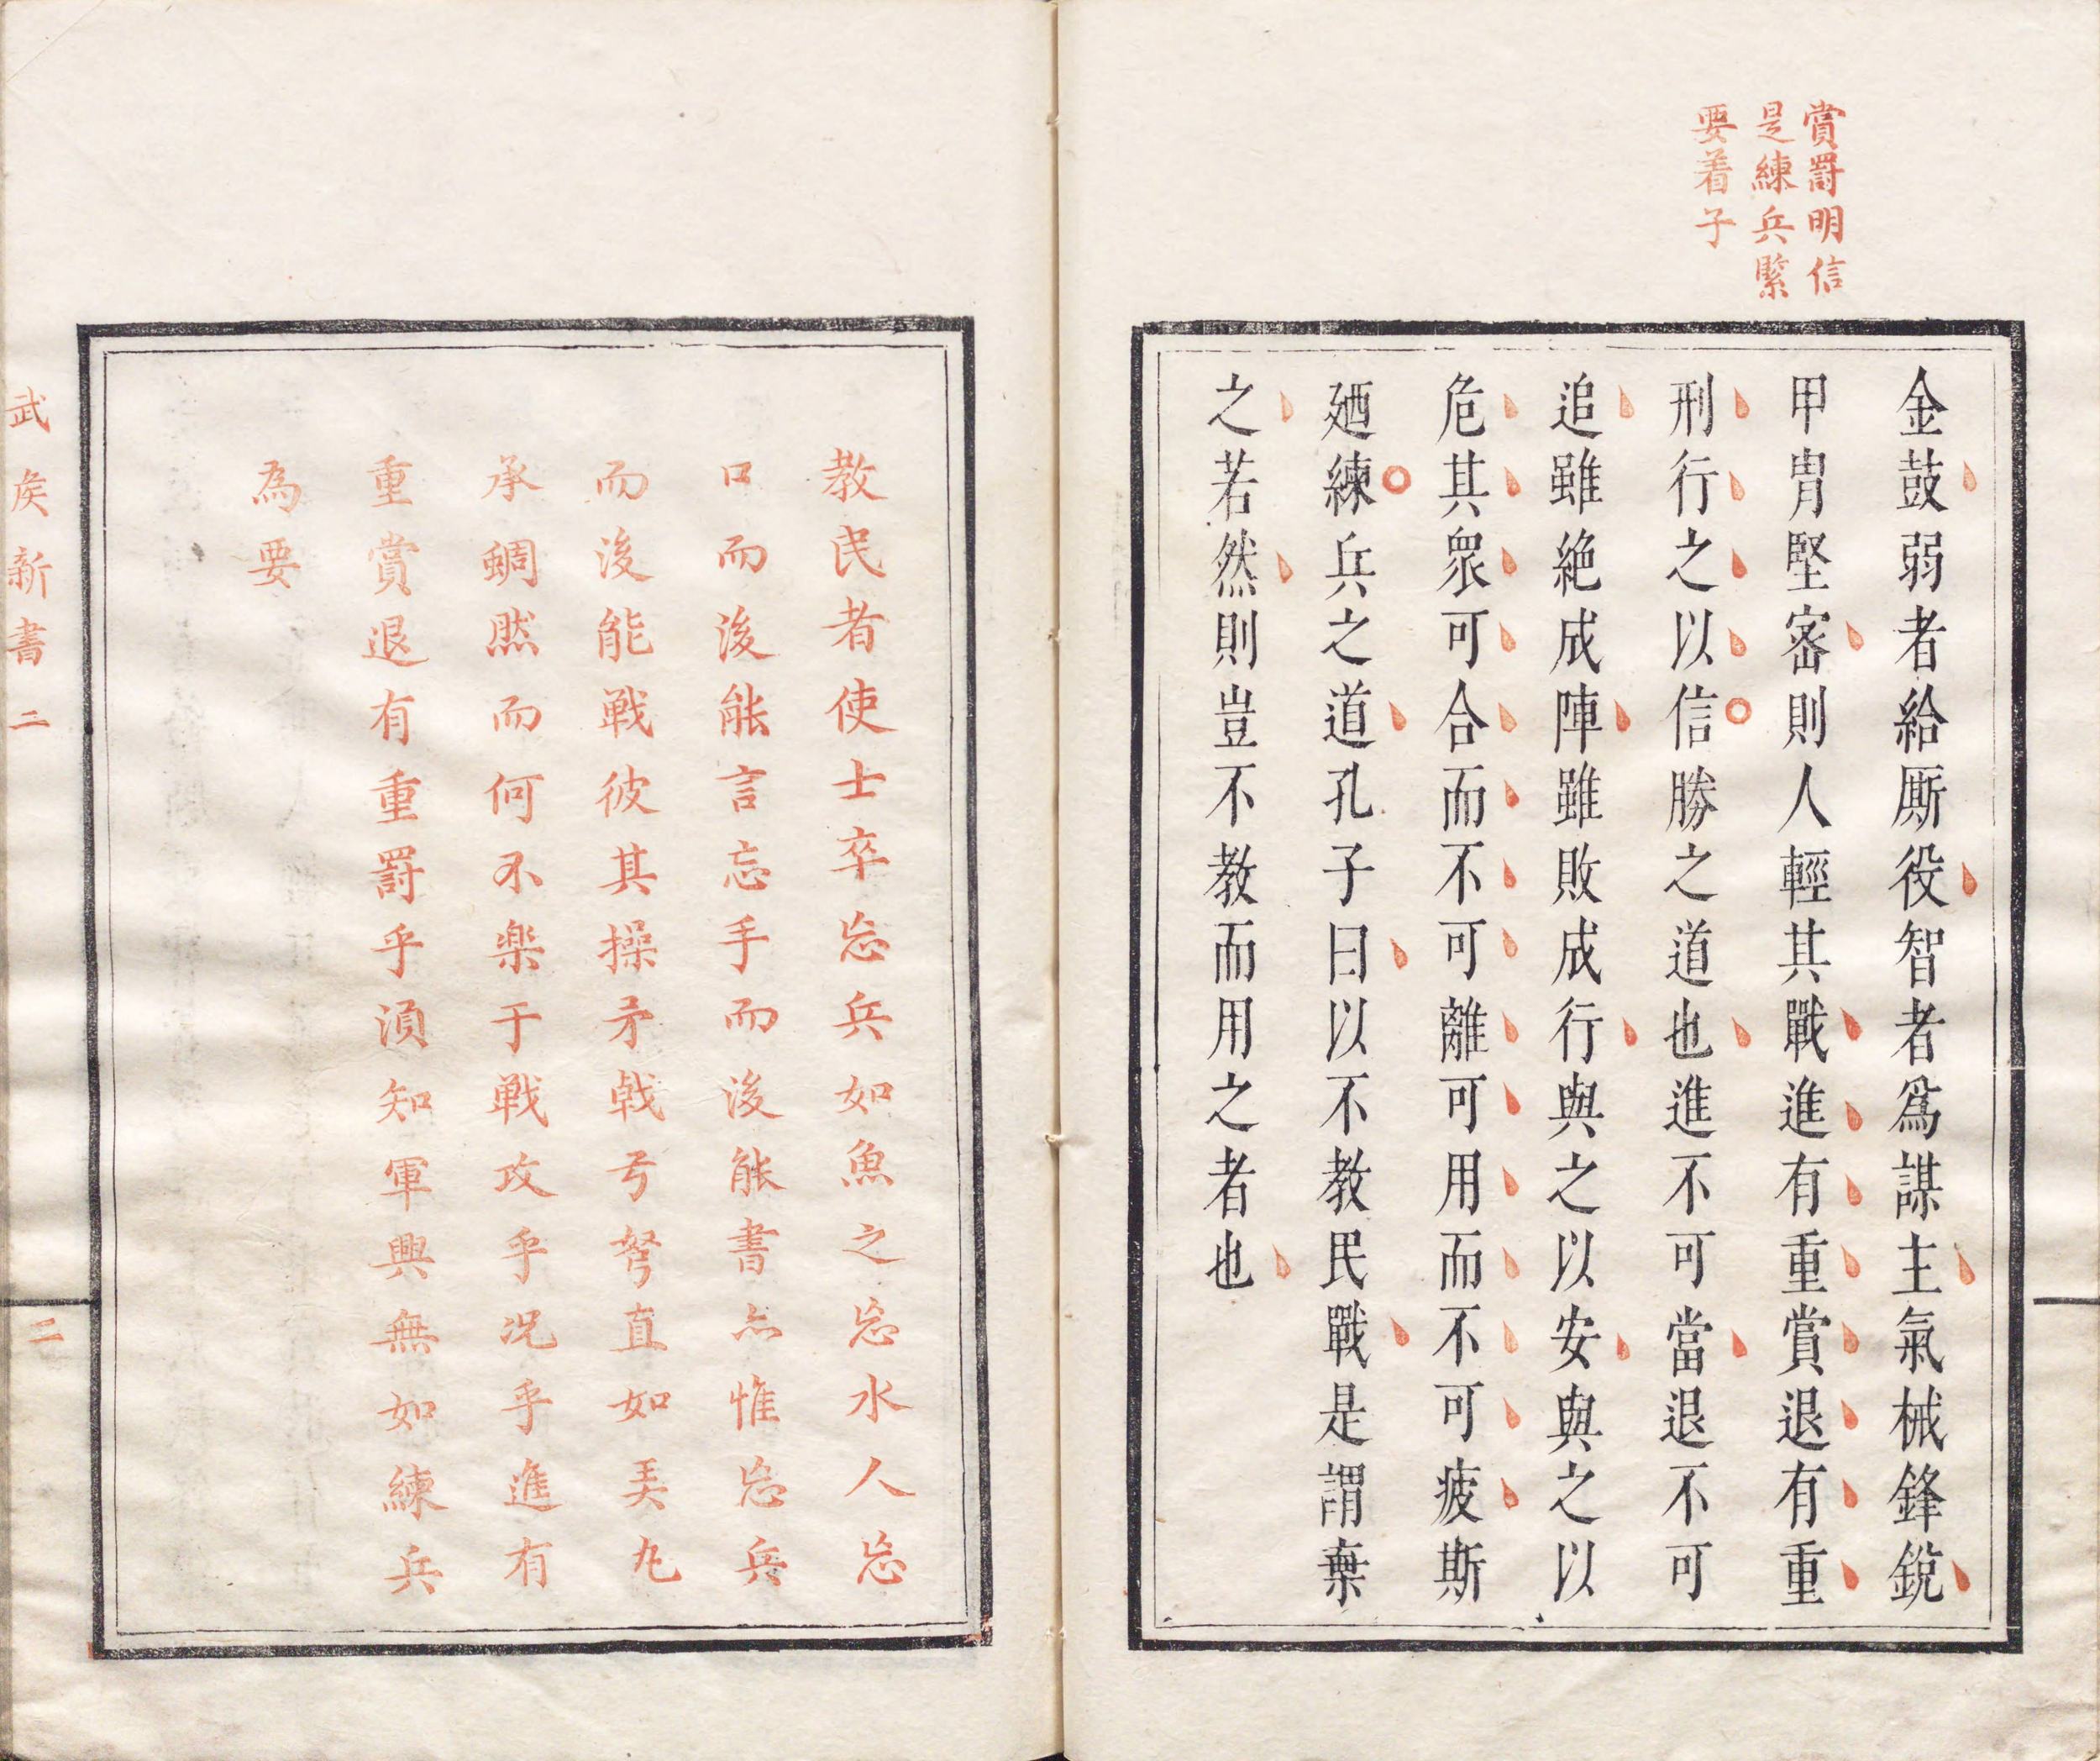 賞罸明信
是練兵緊
要着子
金鼓弱者給厮役智者爲謀主氣械鋒銳
甲冑堅宻則人輕其戰進有重賞退有重
刑行之以信勝之道也進不可當退不可
追雖絶成陣雖敗成行與之以安與之以
危其衆可合而不可離可用而不可疲斯
廼練兵之道孔子曰以不教民戰是謂棄
之若然則豈不教而用之者也
教民者使士卒忘兵如魚之忘水人忘
口而後能言忘手而後能書亦惟忘兵
而後能戰彼其操矛戟弓弩直如美丸
承蜩然而何不樂于戰攻乎况乎進有
重賞退有重罸乎湏知軍興無如練兵
為要
武矦新書二
二